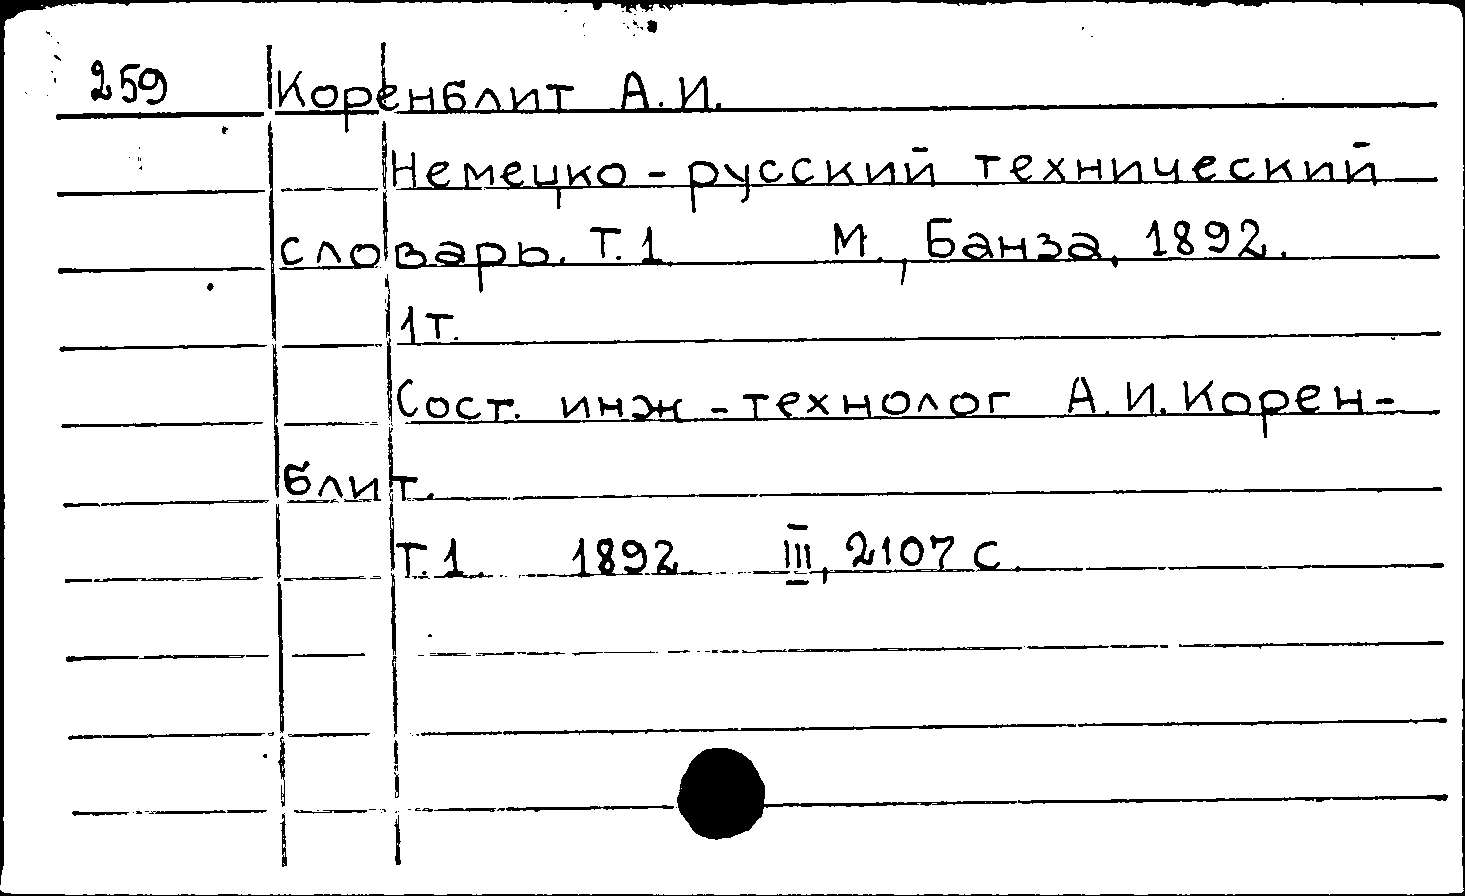 259 Коренблит А.И.
Немецко-русский технический
словарь. Т.1 М., Банза, 1892.
1т.
Сост. инж-технолог А.И.Корен-
блит.
Т.1. 1892. III, 2107 с.